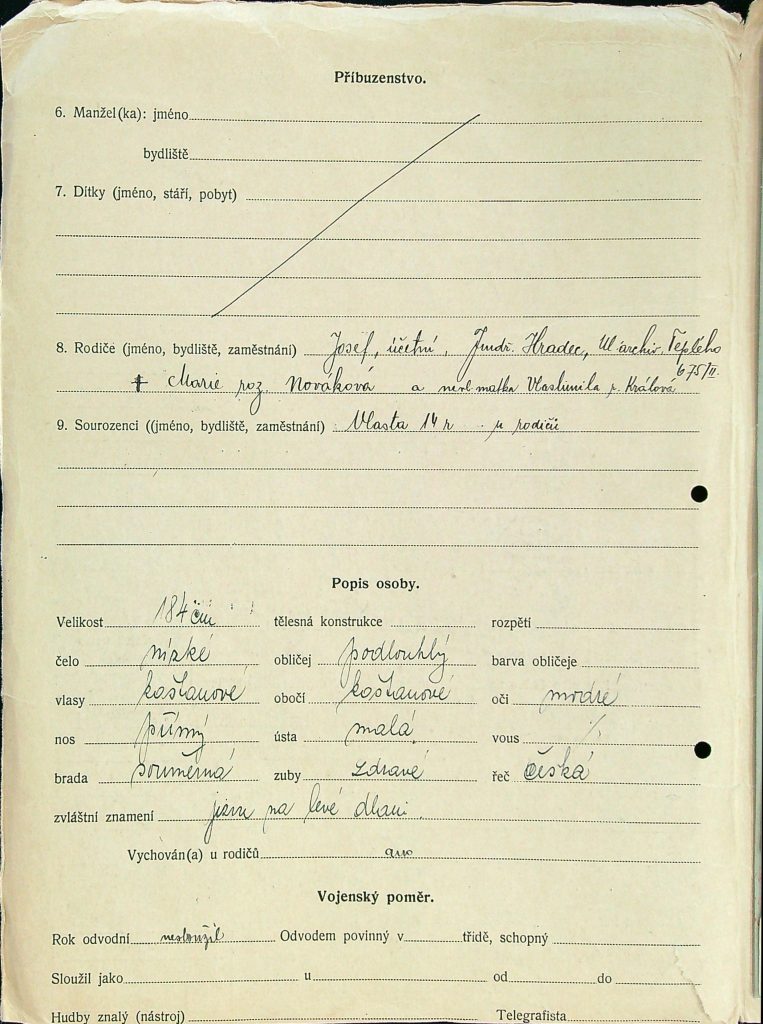 Příbuzenstvo.
6. Manžel(ka): jméno
bydliště
7. Dítky (jméno, stáří, pobyt)
8. Rodiče (jméno, bydliště, zaměstnání) Josef, účetní, Jindř. Hradec, Ul. archiv. Teplého
675/II.
+ Marie roz. Nováková a nevl. matka Vlastimila r. Králová
9. Sourozenci ((jméno, bydliště, zaměstnání) Vlasta 14 r. u rodičů
Popis osoby.
Velikost 184 cm tělesná konstrukce rozpětí
čelo nízké obličej podlouhlý barva obličeje
vlasy kaštanové obočí kaštanové oči modré
nos přímý ústa malá vous ./.
brada souměrná zuby zdravé řeč česká
zvláštní znamení na levé dlani.
Vychován(a) u rodičů ano
Vojenský poměr.
Rok odvodní nesloužil Odvodem povinný v třídě, schopný
Sloužil jako u od do
Hudby znalý (nástroj) Telegrafista